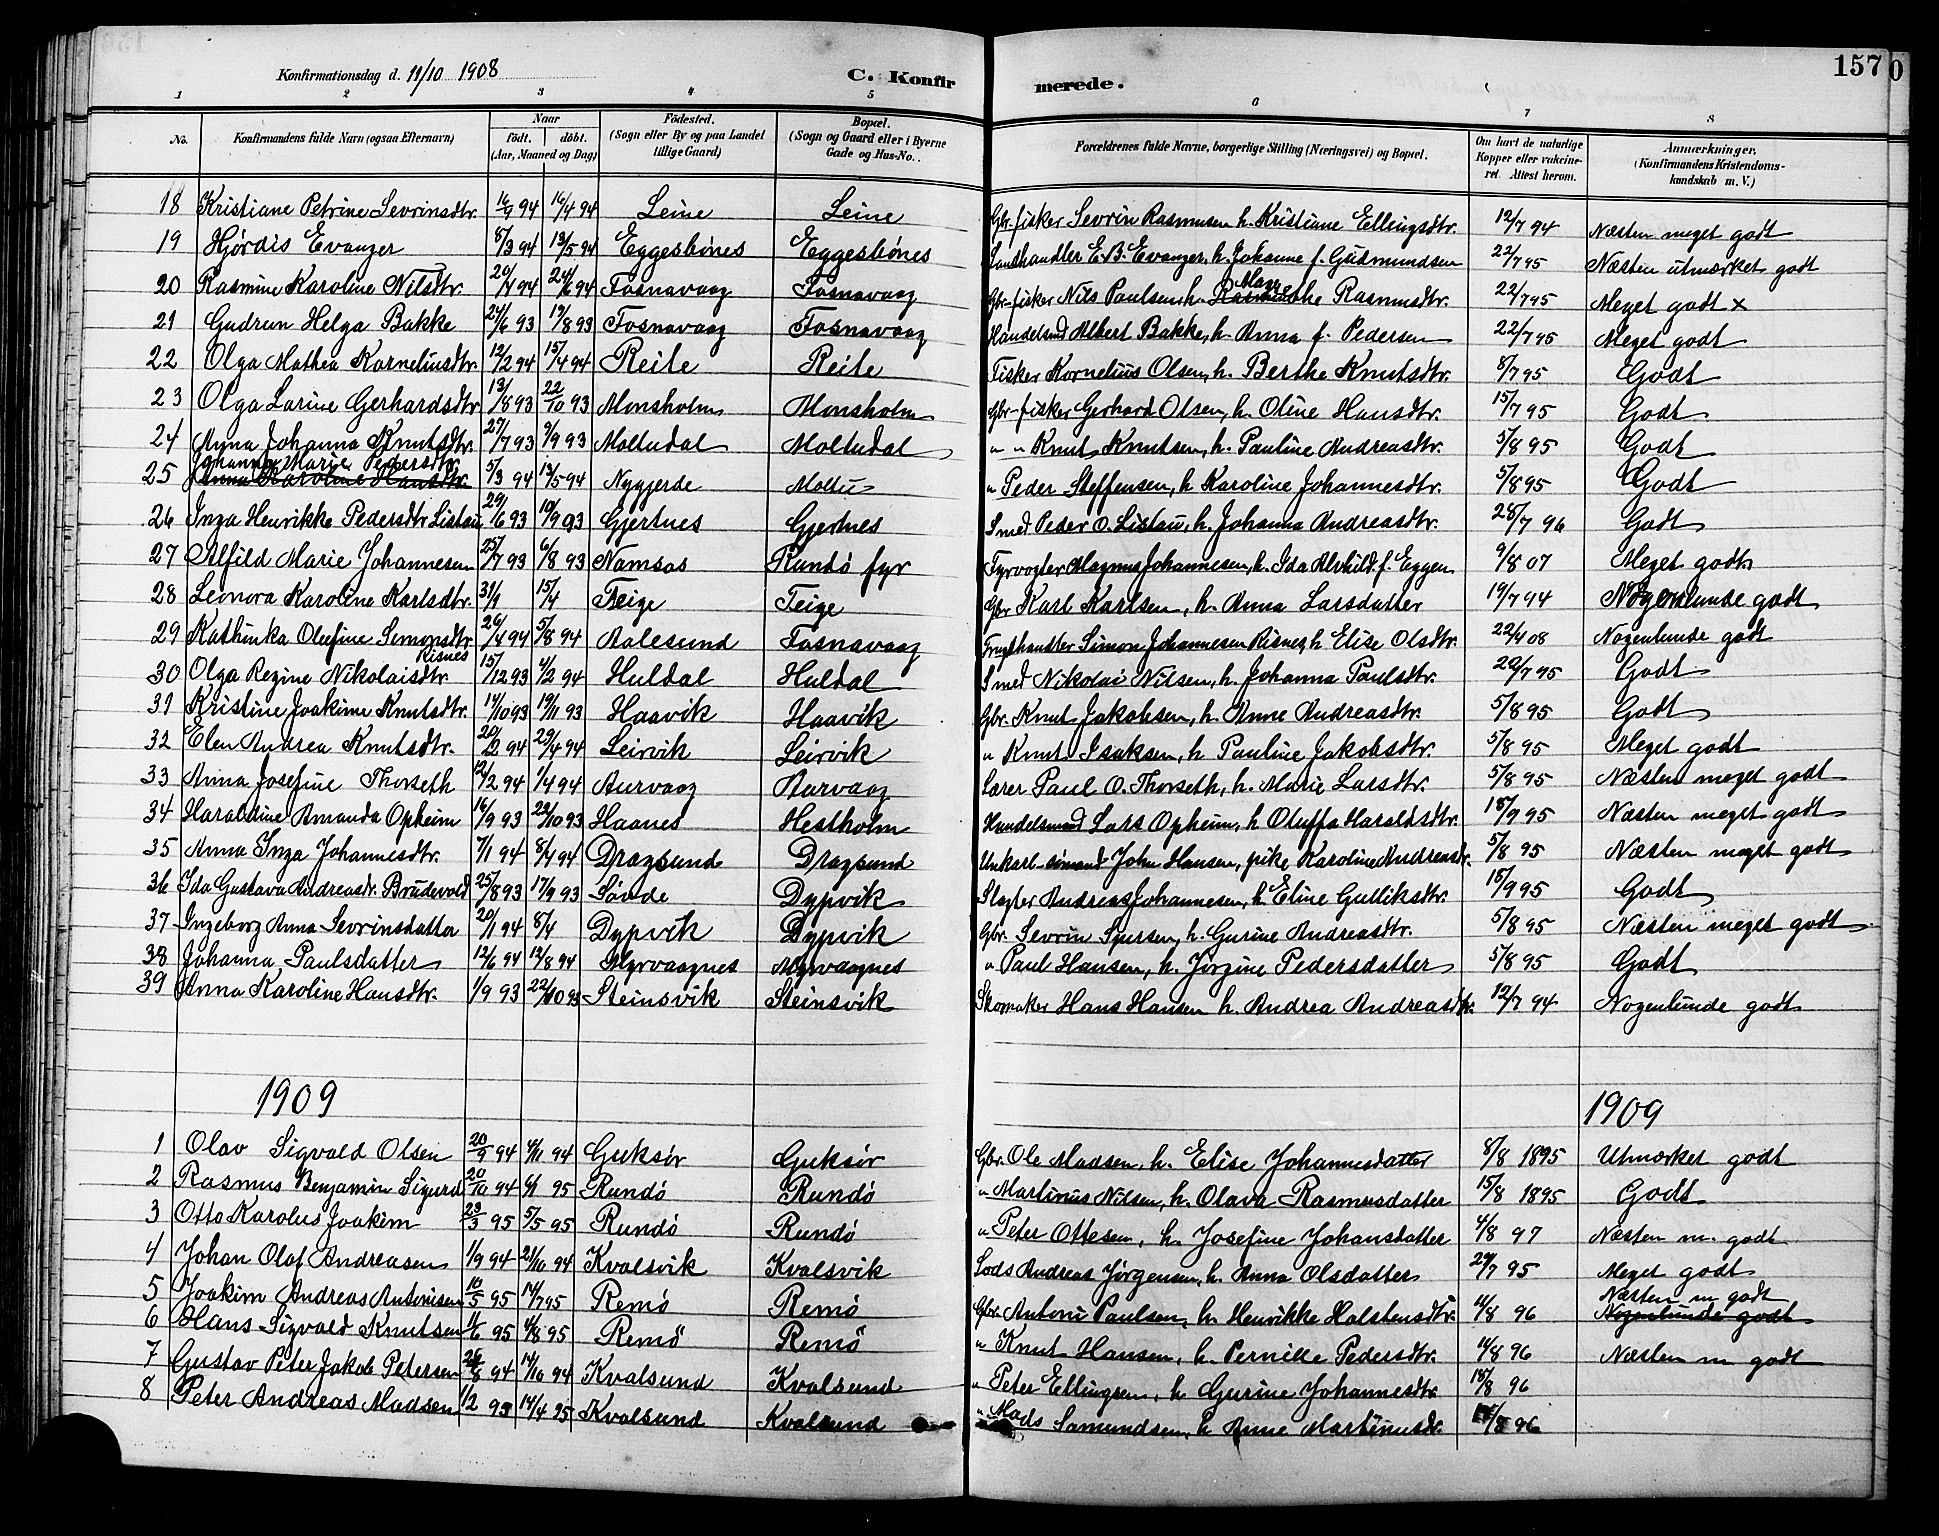 157
Konfirmationsdag d. 11/10 1908
C. Konfirmerede.
1 2 3 4 5 6 7 8
No. | Konfirmandens fulde Navn (ogsaa Efternavn) | Naar født. døbt. (Aar, Maaned og Dag) | Fødested. (Sogn eller By og paa Landet tillige Gaard) | Bopæl. (Sogn og Gaard eller i Byerne Gade og Hus-No.. | Forældrenes fulde Navne, borgerlige Stilling (Næringsvei) og Bopæl. | Om havt de naturlige Kopper eller vakcineret. Attest herom. | Anmærkninger. (Konfirmandens Kristendomskundskab m. V.)
18 Kristiane Petrine Sevrinsdtr. 16/9 94 16/4 94 Leine Leine Gbr. fisker Sevrin Rasmusen h. Kristiane Ellingsdtr. 12/7 94 Næsten meget godt
19 Hjørdis Evanger 8/3 94 13/5 94 Eggesbønes Eggesbønes Landhandler E. B. Evanger, h. Johanne f. Gudmundsen 22/7 95 Næsten utmærket godt
20 Rasmine Karoline Nilsdtr. 20/4 94 24/6 94 Fosnavaag Fosnavaag Gbr-fisker Nils Paulsen h. Rasmusdtr. 22/7 95 Meget godt x
21 Gudrun Helga Bakke 24/6 93 19/8 93 Fosnavaag Fosnavaag Handelsmd Albert Bakke, h. Anna f. Pedersen 22/7 95 Meget godt
22 Olga Mathea Korneliusdtr. 12/2 94 15/4 94 Reite Reite Fisker Kornelius Olsen, h. Berthe Knutsdtr. 8/7 95 Godt
23 Olga Larine Gerhardsdtr 13/8 93 22/10 93 Monsholm Monsholm Gbr-fisker Gerhard Olsen, h. Oline Hansdtr. 15/7 95 Godt
24 Anna Johanna Knutsdtr. 27/7 93 9/9 93 Moltudal Moltudal " " Knut Knutsen, h. Pauline Andreasdtr. 5/8 95 Godt
Johanna Marie Pedersdtr.
25 Anna Karoline Hansdtr. 5/3 94 13/5 94 Nygjerde Moltu " Peder Steffensen, h Karoline Johannesdtr. 5/8 95 Godt
26 Inga Henrikke Pedersdtr Listau 29/6 93 10/9 93 Gjertnes Gjertnes Smed Peder O. Listau, h. Johanna Andreasdtr. 28/7 96 Godt
27 Alfild Marie Johannesen 25/7 93 6/8 93 Namsos Rundø fyr Fyrvogter Magnus Johannesen, h. Ida Alvhild f. Eggen 9/8 07 Meget godt
28 Leonora Karoline Karlsdtr. 31/1 15/4 Teige Teige Gbr Karl Karlsen, h. Anna Larsdatter 19/7 94 Nogenlunde godt
29 Kathinka Olufine Simonsdtr 26/4 94 5/8 94 Aalesund Fosnavaag Frugthandler Simon Johannesen Risnes, h Elise Olsdtr. 22/4 08 Nogenlunde godt
Risnes
30 Olga Regine Nikolaisdtr. 15/12 93 4/2 94 Huldal Huldal Smed Nikolai Nilsen, h. Johanna Paulsdtr. 20/7 95 Godt
31 Kristine Joakime Knutsdtr. 14/10 93 19/11 93 Haavik Haavik Gbr. Knut Jakobsen, h. Anne Andreasdtr. 5/8 95 Godt
32 Elen Andrea Knutsdtr. 20/2 94 29/4 94 Leirvik Leirvik " Knut Isaksen, h. Pauline Jakobsdtr. 5/8 95 Meget godt
33 Anna Josefine Thorseth 12/2 94 1/4 94 Aurvaag Aurvaag Lærer Paul O. Thorseth, h. Marie Larsdtr. 5/8 95 Næsten meget godt
34 Haraldine Amanda Opheim 16/9 93 22/10 93 Haanes Hestholm Handelsmand Lars Opheim, h Oluffa Haraldsdtr. 18/9 95 Næsten meget godt
35 Anna Inga Johannesdtr. 7/1 94 8/4 94 Dragsund Dragsund Unkarl John Hansen, pike Karoline Andreasdtr. 5/8 95 Næsten meget godt
36 Ida Gustava Andreasdtr. Brudevold 25/8 93 17/9 93 Søvde Dypvik Slagter Andreas Johannesen, h. Eline Gulliksdtr. 15/9 95 Godt
37 Ingeborg Anna Sevrinsdatter 20/1 94 8/4 Dypvik Dypvik Gbr. Sevrin Sjursen, h. Gurine Andreasdtr. 5/8 95 Næsten meget godt
38 Johanna Paulsdatter 12/6 94 12/8 94 Myrvaagnes Myrvaagnes " Paul Hansen, h. Jørgine Pedersdatter 5/8 95 Godt
39 Anna Karoline Hansdtr. 1/9 93 22/10 93 Steinsvik Steinsvik Skomaker Hans Hansen h. Andrea Andreasdtr. 12/7 94 Nogenlunde godt
1909 1909
1 Olav Sigvald Olsen 20/9 94 4/11 94 Guksør Guksør Gbr. Ole Madsen, h. Elise Johannesdatter 8/8 1895 Utmærket godt
2 Rasmus Benjamin Sigurd 20/10 94 4/1 95 Rundø Rundø " Martinus Nilsen, h. Olava Rasmusdatter 15/8 1895 Godt
3 Otto Karolus Joakim 23/3 95 5/5 95 Rundø Rundø " Peter Ottesen, h. Josefine Johansdatter 4/8 97 Næsten m. godt
4 Johan Olaf Andreasen 1/9 94 21/10 94 Kvalsvik Kvalsvik Lods Andreas Jørgensen, h. Anna Olsdatter 29/7 95 Meget godt
5 Joakim Andreas Antonisen 10/5 95 14/7 95 Remø Remø Gbr. Antoni Paulsen, h. Henrikke Holstensdtr. 4/8 96 Næsten m godt
Nogenlunde godt
6 Hans Sigvald Knutsen 11/6 95 4/8 95 Remø Remø " Knut Hansen, h. Pernille Pedersdtr. 11/8 96 Næsten m godt
7 Gustav Peter Jakob Petersen 26/8 94 14/10 94 Kvalsund Kvalsund " Peter Ellingsen, h Gurine Johannesdtr. 18/8 96
8 Peter Andreas Madsen 1/2 95 14/4 95 Kvalsund Kvalsund " Mads Samundsen, h Anne Martinusdtr. /8 96